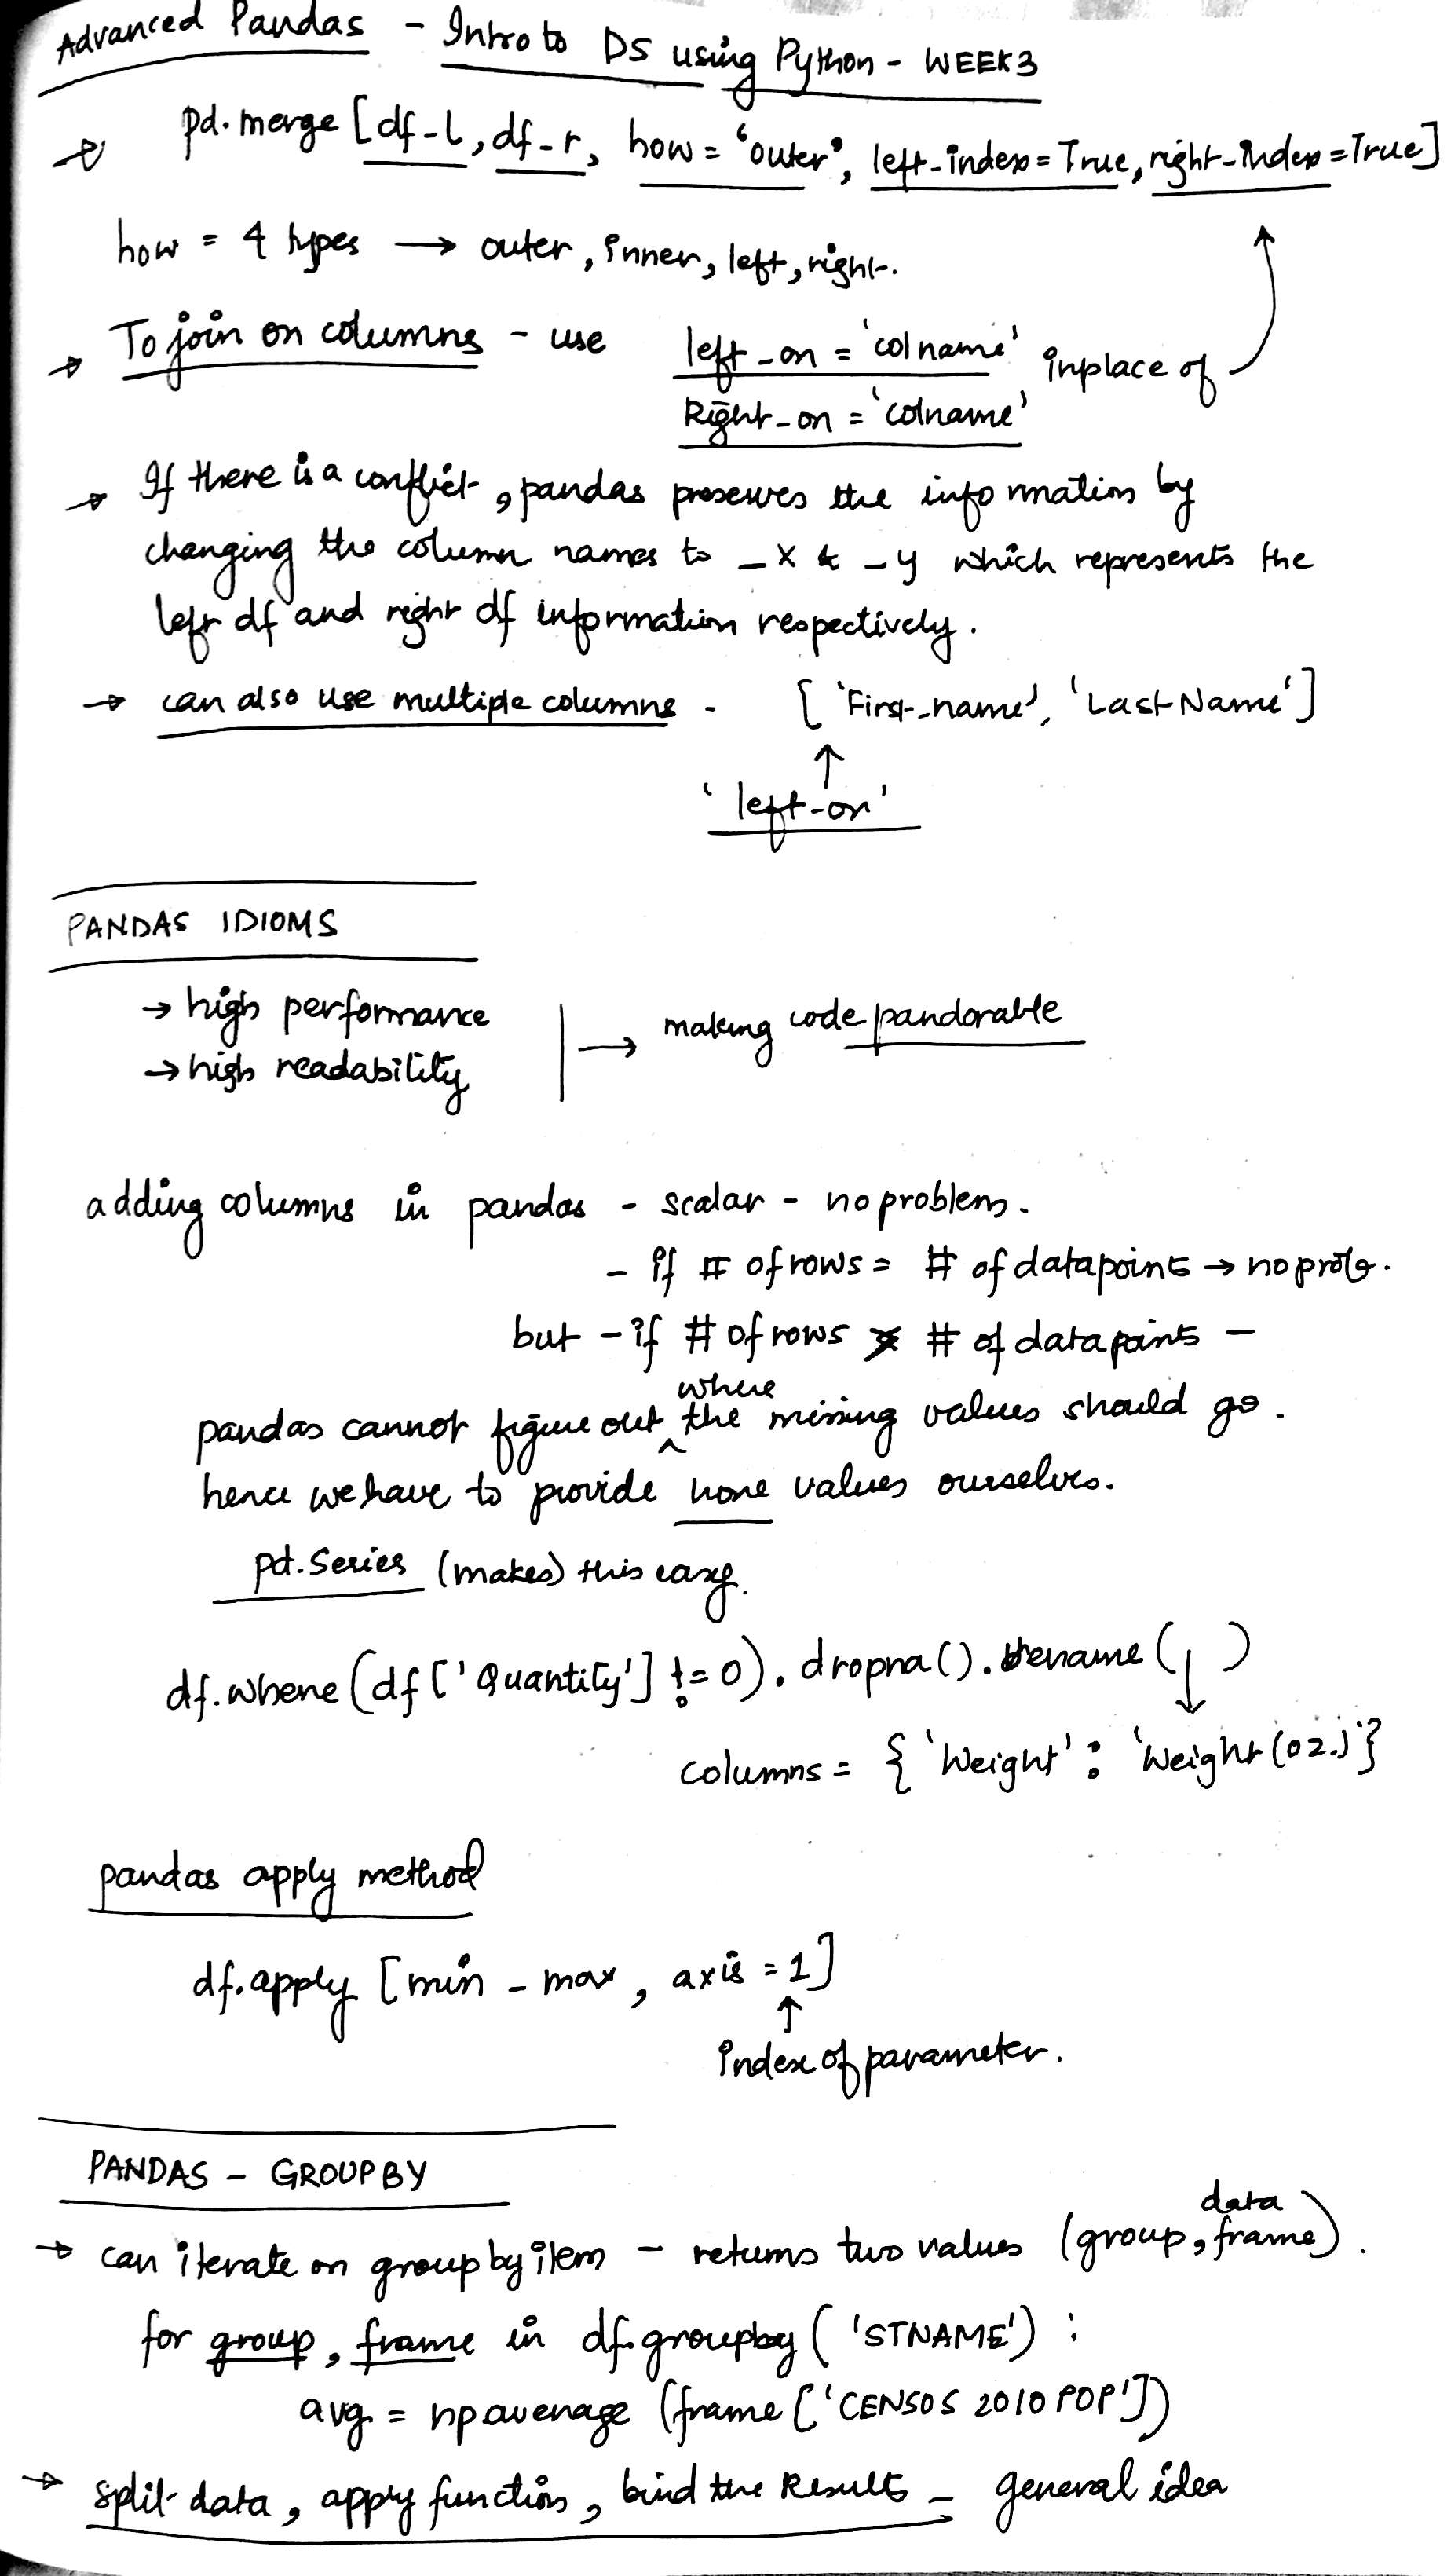 Advanced Pandas - Intro to DS using Python - WEEK3
pd.merge [df-l, df-r, how = "outer", left-index = True, right-index = True]
how = 4 types → outer, inner, left, right.
→ To join on columns - use left_on = 'colname' inplace of
Right_on = 'colname'
→ If there is a conflict, pandas preserves the information by
changing the column names to _x & _y which represents the
left df and right df information respectively.
→ can also use multiple columns - ['First_name', 'Last Name']
↑
'left-on'
PANDAS IDIOMS
→ high performance
→ high readability → making code pandorable
adding columns in pandas - scalar - no problem.
- if # of rows = # of datapoints → no prob.
but - if # of rows ≠ # of datapoints -
pandas cannot figure out where the missing values should go.
hence we have to provide none values ourselves.
pd.Series (makes) this easy.
df.where(df['Quantity'] != 0).dropna().rename( )
columns = {'Weight': 'Weight (oz.)'}
pandas apply method
df.apply [min - max, axis = 1]
↑
index of parameter.
PANDAS - GROUPBY
→ can iterate on groupby item - returns two values (group, data frame).
for group, frame in df.groupby('STNAME'):
avg = np average (frame['CENSOS 2010 POP'])
→ split data, apply function, bind the Results - general idea